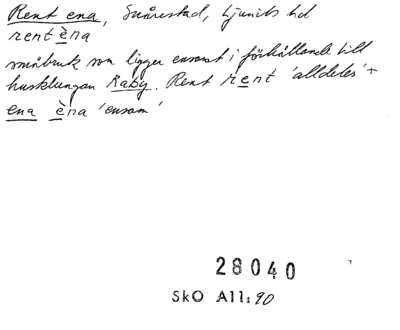 Rent ena, Snårestad, Ljunits hd
rent èna
småbruk som ligger ensamt i förhållande till
husklungan Råby. Rent rent 'alldeles' +
ena èna 'ensam'
28040
SkO All: 90